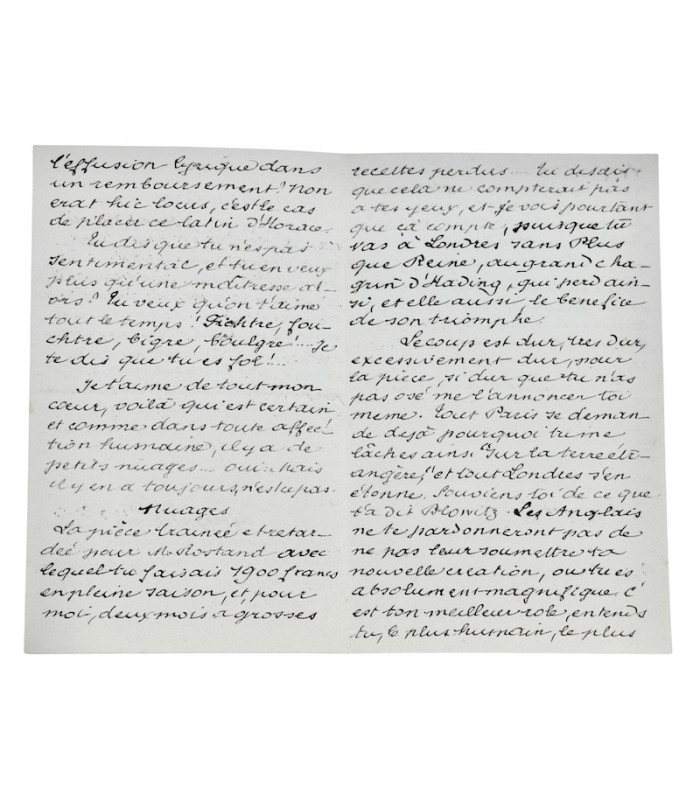 l'effusion lyrique dans
un remboursement? Non
erat hic locus, c'est le cas
de placer ce latin d'Horace.
Tu dis que tu n'es pas
sentimental, et tu en veux
plus qu'une maîtresse al-
ors? Tu veux qu'on t'aime
tout le temps! Fichtre, fou-
chtre, bigre, boulgre!... Je
te dis que tu es fol!...
Je t'aime de tout mon
cœur, voilà qui est certain
et comme dans toute affec-
tion humaine, il y a de
petits nuages... oui mais
il y en a toujours, n'est ce pas.
Nuages
La pièce trainée et retar-
dée pour M. Rostand avec
lequel tu faisais 1900 francs
en pleine saison, et pour
moi, deux mois à grosses
recettes perdus.... Tu disdis
que cela ne compterait pas
à tes yeux, et je vois pourtant
que çà compte, puisque tu
vas à Londres sans Plus
que Reine, au grand cha-
grin d'Hading, qui perd ain-
si, et elle aussi le benefice
de son triomphe.
Le coup est dur, tres dur,
excessivement dur, pour
la pièce, si dur que tu n'as
pas osé me l'annoncer toi
meme. Tout Paris se deman-
de dejà pourquoi tu me
lâches ainsi "sur la terre étr-
angère," et tout Londres s'en
étonne. Souviens toi de ce que
t'a dit Blowitz. Les Anglais
ne te pardonneront pas de
ne pas leur soumettre ta
nouvelle creation, ou tu es
absolument magnifique. c'
est ton meilleur role, entends
tu, le plus humain, le plus